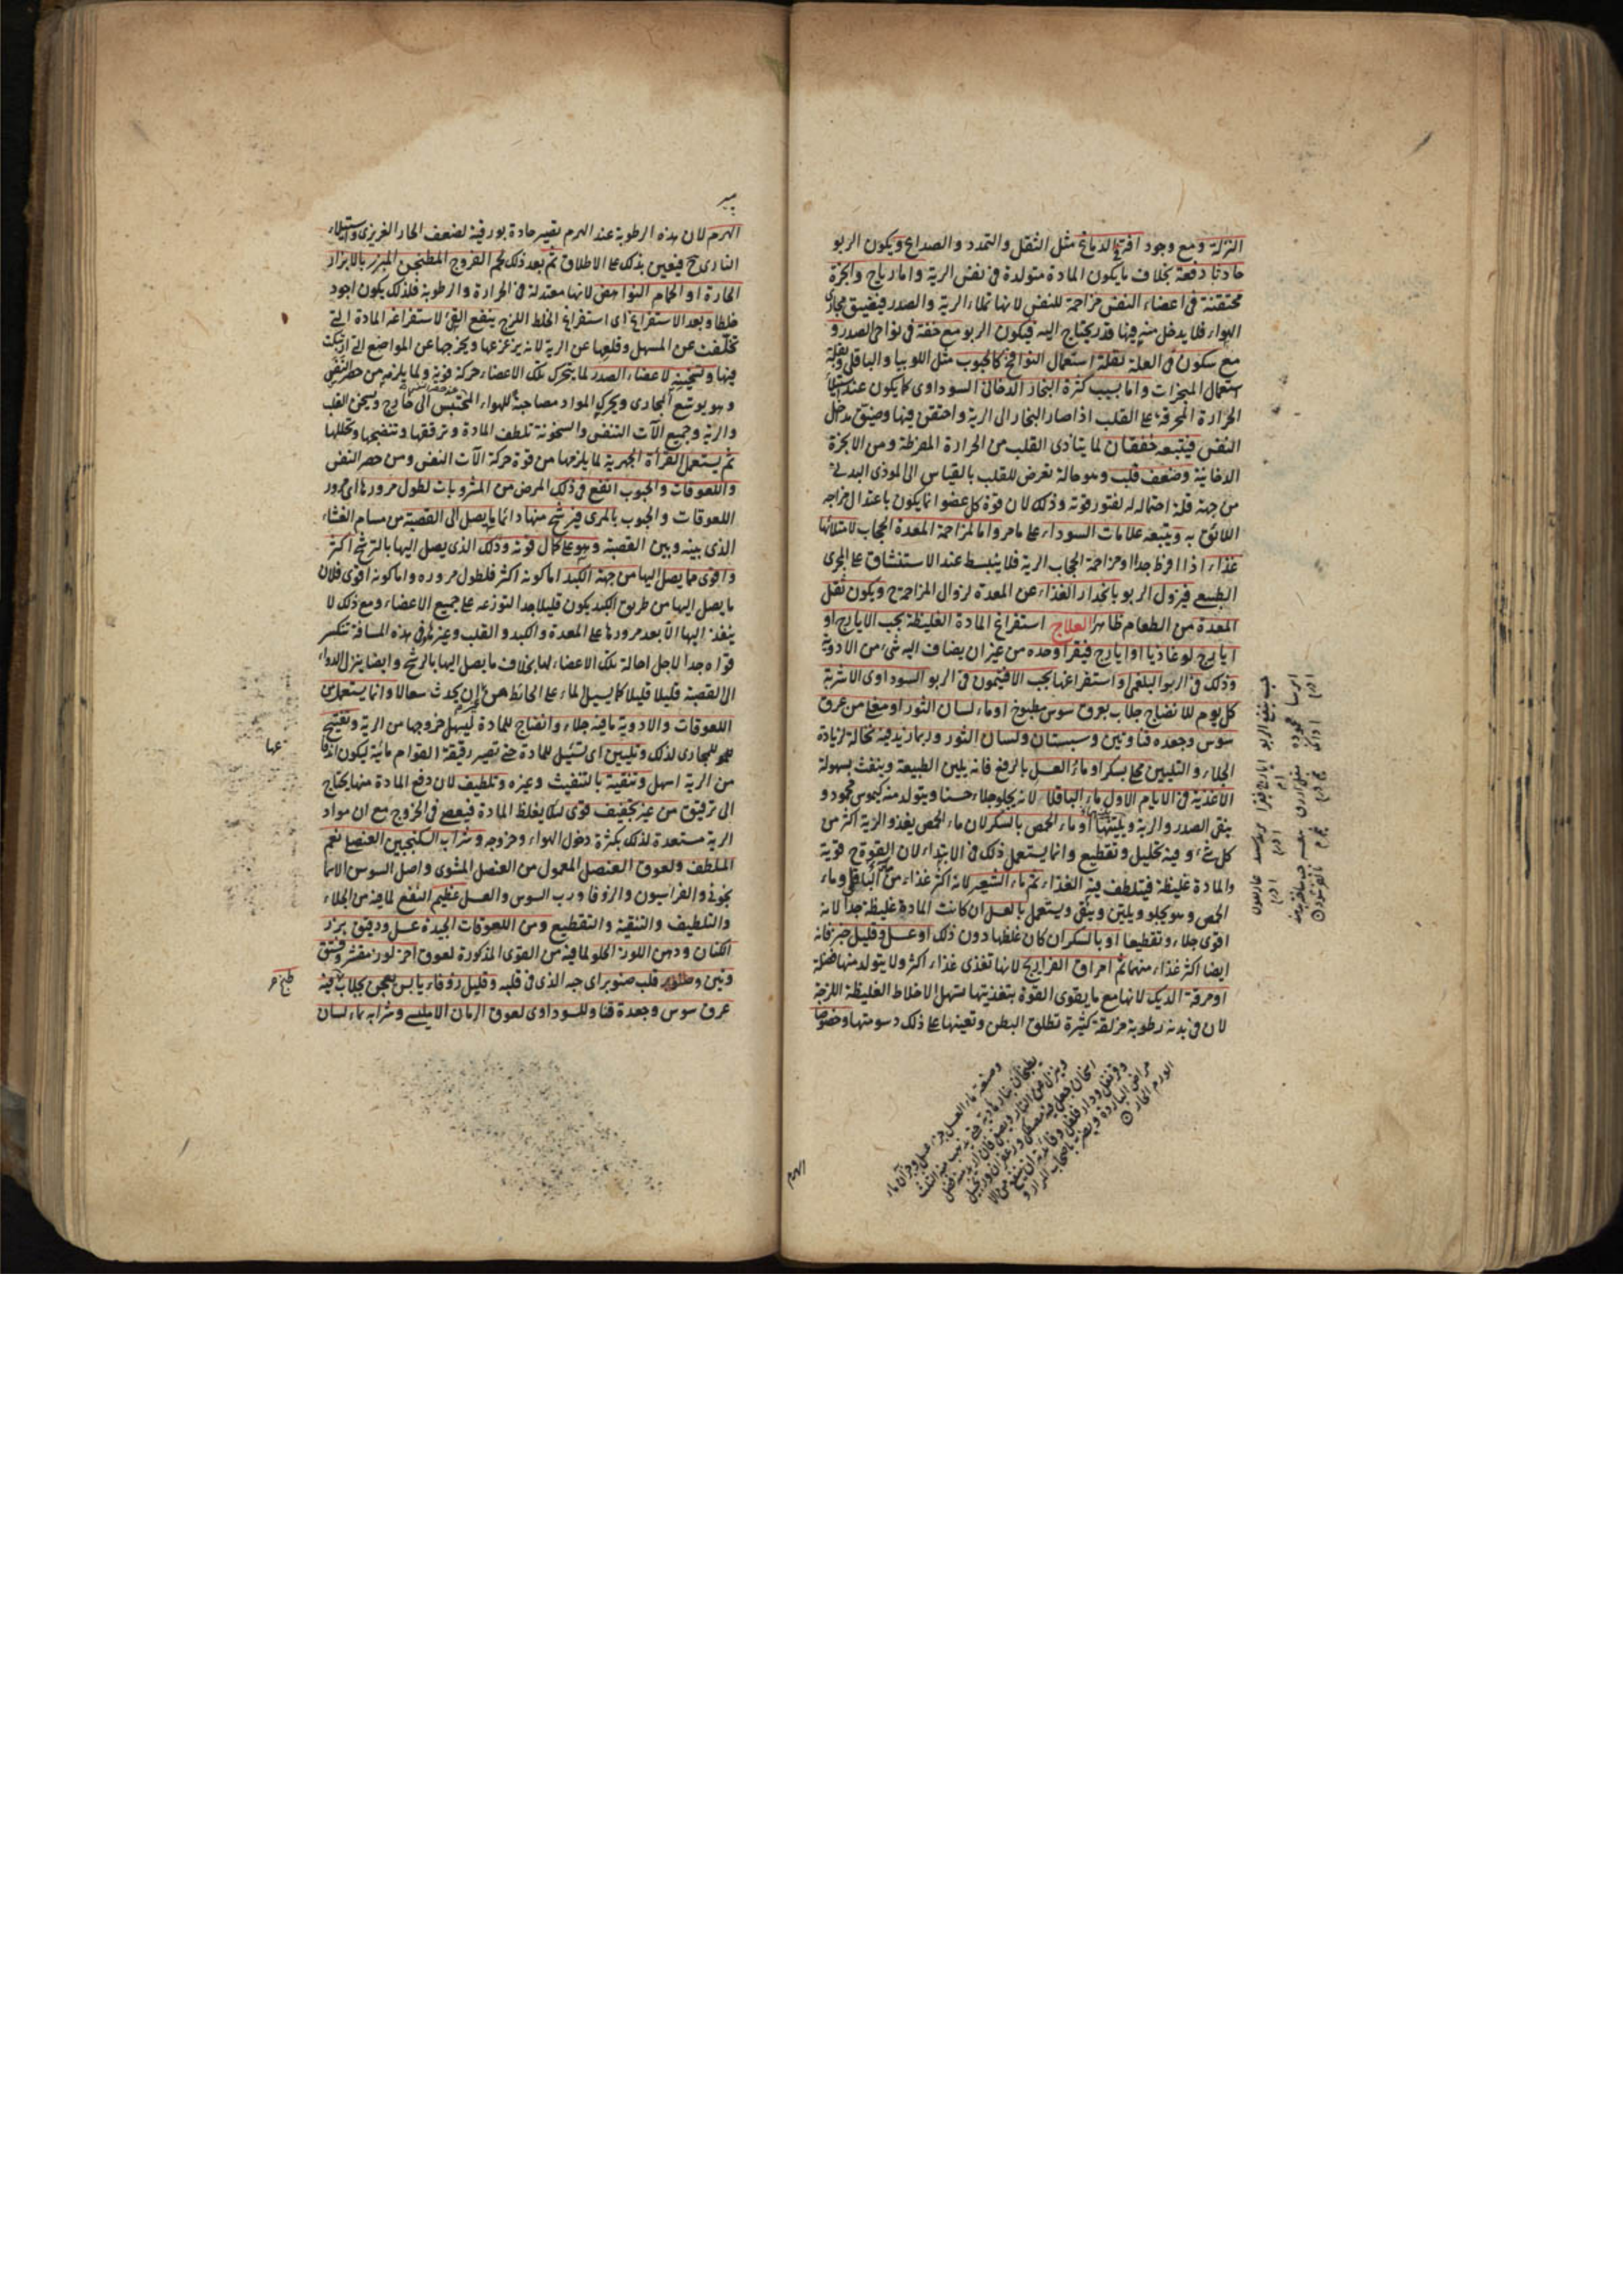 النزلة ومع وجود افة الدماغ مثل الثقل والتمدد والصداع ويكون الربو
حادثا دفعة بخلاف ما يكون المادة متولدة فى نفس الرية واما رياح وابخرة
محتقنة فى اعضاء النفس مزاحمة للنفس لانها تملاء الرية والصدر فيضيق مجارى
الهواء فلا يدخل منه فيها قدر يحتاج اليه فيكون الربو مع خفة فى نواحى الصدر و
مع سكون فى العلة بقلة استعمال النوافخ كالحبوب مثل اللوبيا والباقلى وبقلة
استعمال المبخرات واما بسبب كثرة البخار الدخانى السوداوى كما يكون عند استيلاء
الحرارة المحرقة على القلب اذا صار البخار الى الرية واحتقن فيها وضيق مدخل
النفس فيتبعه خفقان لما يتاذى القلب من الحرارة المفرطة ومن الابخرة
الدخانية وضعف قلب وهو حالة تعرض للقلب بالقياس الى الموذى البدنى
من جهة قلة احتماله له لفتور قوته وذلك لان قوة كل عضو انما يكون باعتدال مزاجه
اللائق به ويتبعه علامات السوداء على ما مر واما لمزاحمة المعدة الحجاب لامتلائها
غذاء اذا افرط جدا ومزاحمة الحجاب الرية فلا ينبسط عند الاستنشاق على المجرى
الطبيعى فيزول الربو بانحدار الغذاء عن المعدة لزوال المزاحمة ح ويكون ثقل
المعدة من الطعام ظاهرا العلاج استفراغ المادة الغليظة بحب الايارج او
ايارج لوغاذيا او ايارج فيقرا وحده من غير ان يضاف اليه شىء من الادوية
وذلك فى الربو البلغمى واستفراغها بحب الافتيمون فى الربو السوداوى الاشربة
كل يوم للانضاج جلاب بعرق سوس مطبوخ او ماء لسان الثور او مغلى من عرق
سوس وجعده قنا وتين وسبستان ولسان الثور وربما زيد فيه نخالة لزيادة
الجلاء والتليين محلى بسكر او ماء العسل بالرفع فانه يلين الطبيعة وينفث بسهولة
الاغذية فى الايام الاول ماء الباقلاء لانه يجلو جلاء حسنا ويتولد منه كيموس محمود و
ينقى الصدر والرية ويلينها او ماء الحمص بالسكر لان ماء الحمص يغذو الرية اكثر من
كل شىء وفيه تحليل وتقطيع وانما يستعمل ذلك فى الابتداء لان القوة ح قوية
والمادة غليظة فيتلطف فيه الغذاء ثم ماء الشعير لانه اكثر غذاء من ماء الباقلى وماء
الحمص وهو يجلو ويلين وينقى ويستعمل بالعسل ان كانت المادة غليظة جدا لانه
اقوى جلاء وتقطيعا او بالسكر ان كان غلظها دون ذلك او عسل وقليل خبز فانه
ايضا اكثر غذاء منهما ثم امراق الفراريج لانها تغذى غذاء اكثر ولا يتولد منها فضلة
او مرقة الديك لانها مع ما يقوى القوة بتغذيتها تسهل الاخلاط الغليظة اللزجة
لان فى بدنه رطوبة مزلقة كثيرة تطلق البطن وتعينها على ذلك دسومتها وخصوصا
وصفة ماء العسل جزء عسل وجزآن ماء
يطبخان بنار هادية حتى يذهب منه الثلث
وينزل عن النار ويصفى فان اريد منه فضل
اسخان جعل فيه مصطكى وزعفران وزنجبيل
وقرنفل ودار فلفل
الورم الحار
الهرم
الهرم لان هذه الرطوبة عند الهرم تصير حادة بورقية لضعف الحار الغريزى واستيلاء
النارى ح فيعين بذلك على الاطلاق ثم بعد ذلك لحم الفروج المطنجن المبزر بالابزار
الحارة او الحمام النواهض لانها معتدلة فى الحرارة والرطوبة فلذلك يكون اجود
خلطا وبعد الاستفراغ اى استفراغ الخلط اللزج ينفع القئ لاستفراغه المادة التى
تخلفت عن المسهل وقلعها عن الرية لانه يزعزعها ويخرجها عن المواضع التى ارتبكت
فيها ولتسخينه لاعضاء الصدر لما يتحرك تلك الاعضاء حركة قوية ولما يلزم من حصر النفس
وهو يوسع المجارى ويحرك المواد مصاحبة للهواء المحتبس الى خارج ويسخن القلب
والرية وجميع الآت التنفس والسخونة تلطف المادة وترققها وتنضجها وتحللها
ثم يستعمل القرأة الجهرية لما يلزمها من قوة حركة الآت النفس ومن حصر النفس
واللعوقات والحبوب انفع فى ذلك المرض من المشروبات لطول مرورها اى مرور
اللعوقات والحبوب بالمرى فيرشح منها دائما ما يصل الى القصبة من مسام الغشاء
الذى بينه وبين القصبة وهو على كمال قوته وذلك الذى يصل اليها بالترشح اكثر
واقوى مما يصل اليها من جهة الكبد اما كونه اكثر فلطول مروره واما كونه اقوى فلان
ما يصل اليها من طريق الكبد يكون قليلا جدا لتوزعه على جميع الاعضاء ومع ذلك لا
ينفذ اليها الا بعد مرورها على المعدة والكبد والقلب وغيرها وفى هذه المسافة تنكسر
قواه جدا لاجل احالة تلك الاعضاء لها بخلاف ما يصل اليها بالرشح وايضا ينزل الدواء
الى القصبة قليلا قليلا كما يسيل الماء على الحائط من غير ان يحدث سعالا وانما يستعمل من
اللعوقات والادوية ما فيه جلاء وانضاج للمادة ليسهل خروجها من الرية وتفتيح
للمجارى لذلك وتليين اى تسييل للمادة حتى تصير رقيقة القوام مائية ليكون اندفاعها
من الرية اسهل وتنقية بالتنفيث وغيره وتلطيف لان دفع المادة منها يحتاج
الى ترقيق من غير تجفيف قوى لئلا يغلظ المادة فيعصى فى الخروج مع ان مواد
الرية مستعدة لذلك بكثرة دخول الهواء وخروجه وشراب السكنجبين العنصلى نعم
الملطف ولعوق العنصل المعمول من العنصل المشوى واصل السوسن الاسما
نجونى والفراسيون والزوفا ورب السوس والعسل عظيم النفع لما فيه من الجلاء
والتلطيف والتنقية والتقطيع ومن اللعوقات الجيدة عسل ودقيق بزر
الكتان ودهن اللوز الحلو لما فيه من القوى المذكورة لعوق اخر لوز مقشر وفستق
وتين وقلب صنوبر اى حبه الذى فى قلبه وقليل زوفاء يابس يعجن بجلاب طبخ فيه
عرق سوس وجعدة قنا وللسوداوى لعوق الرمان الامليسى وشرابه بماء لسان